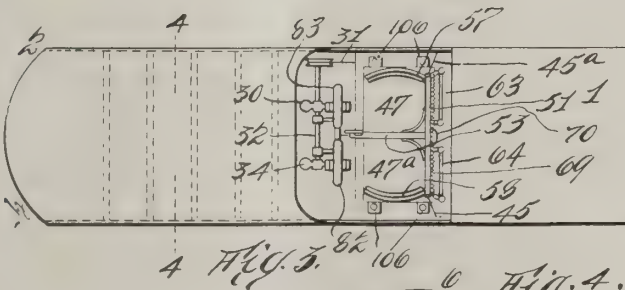 2
4
83
31
106
57
45ª
30
47
63
51
1
32
53
70
34
47ª
64
69
58
82
106
45
4
Fig. 3.
6
Fig. 4.